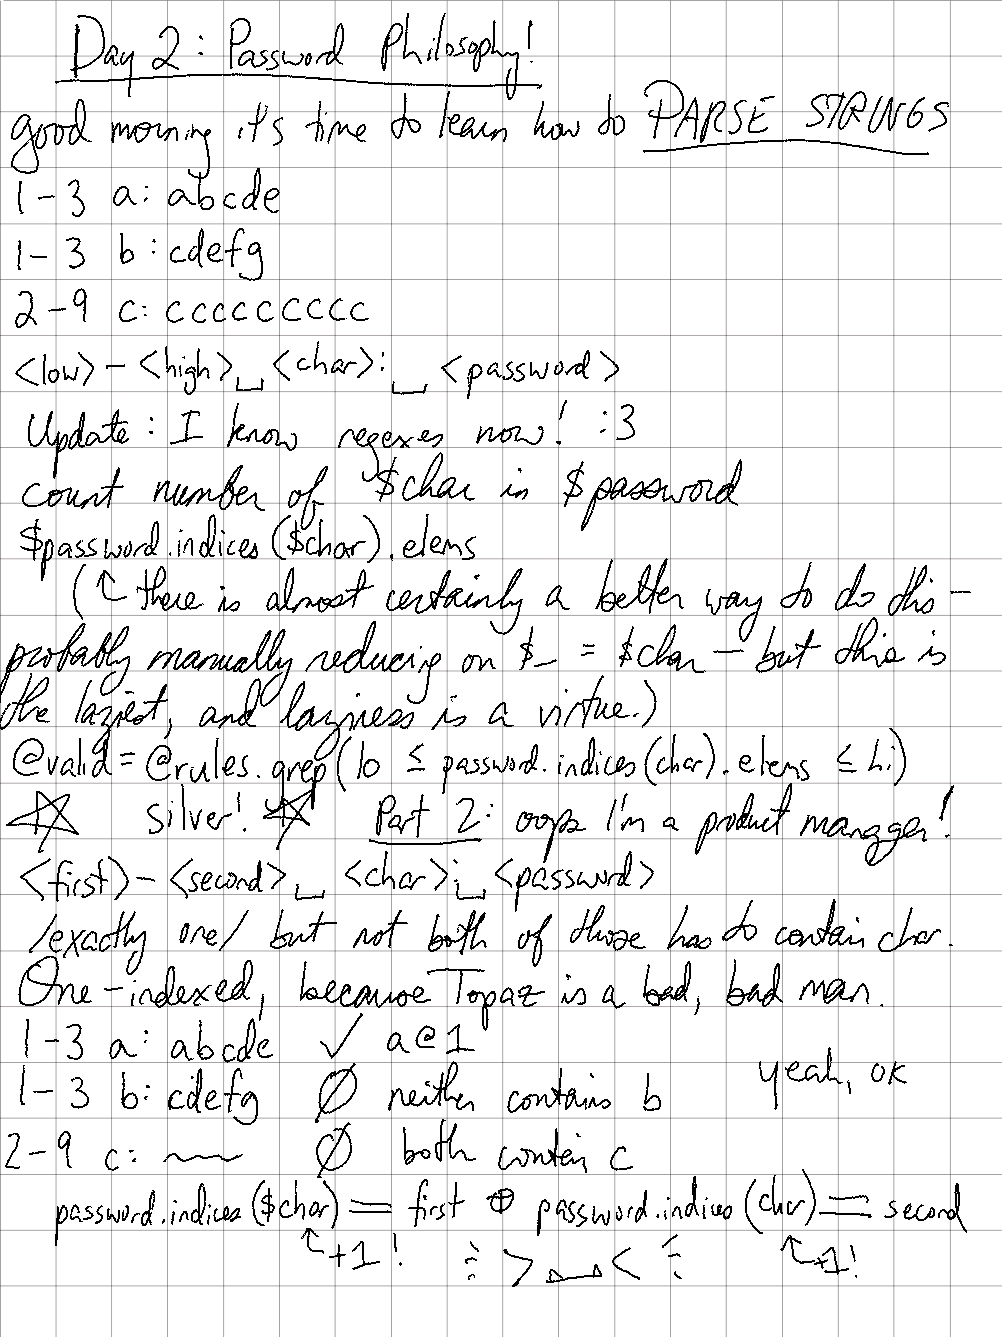 Day 2: Password Philosophy!
good morning it's time to learn how to PARSE STRINGS
1-3 a: abcde
1-3 b: cdefg
2-9 c: ccccccccc
<low>-<high>␣<char>:␣<password>
Update: I know regexes now! :3
count number of $char in $password
$password.indices($char).elems
(↑ there is almost certainly a better way to do this -
probably manually reducing on $_ = $char - but this is
the laziest, and laziness is a virtue.)
@valid = @rules.grep(lo ≤ password.indices(char).elems ≤ hi)
☆ silver! ☆ Part 2: oops I'm a product manager!
<first>-<second>␣<char>:␣<password>
/exactly one/ but not both of those has to contain char.
One-indexed, because Topaz is a bad, bad man.
1-3 a: abcde ✓ a@1
1-3 b: cdefg ∅ neither contains b yeah, ok
2-9 c: ~~~ ∅ both contain c
password.indices($char) == first ⊕ password.indices(char) == second
↑+1! >_< ↑+1!